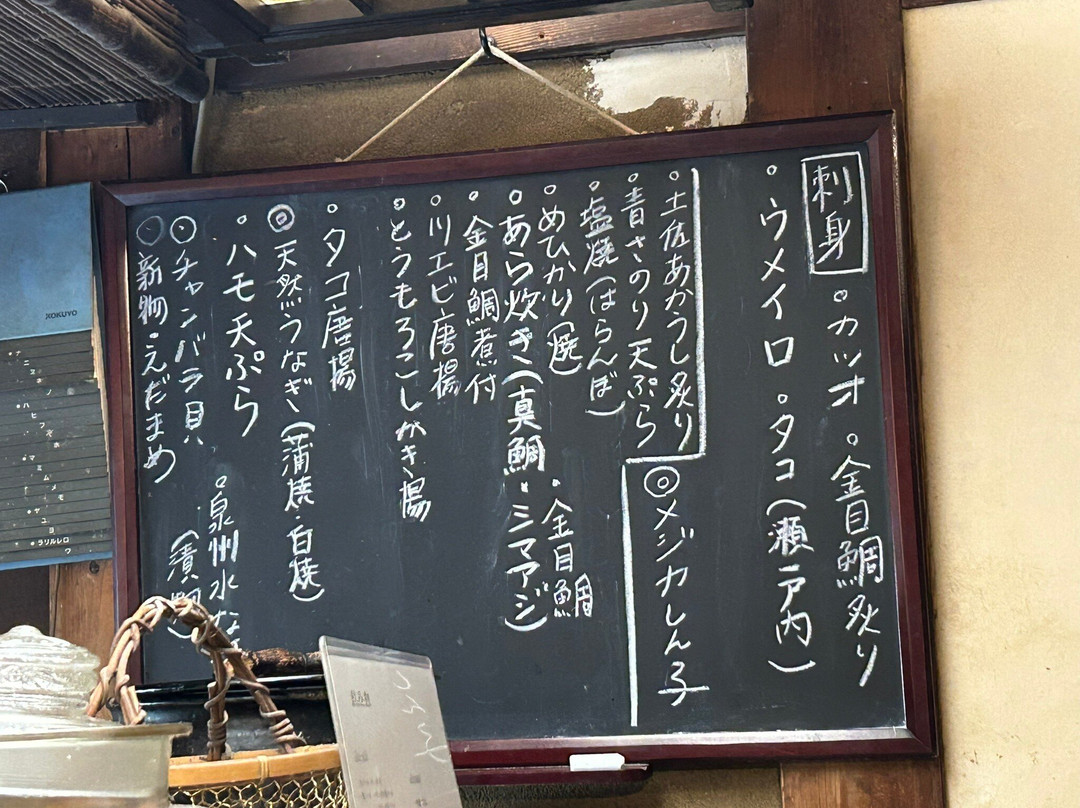 刺身 ・カツオ ・金目鯛炙り
・ウメイロ ・タコ(瀬戸内)
◎メジカしん子
・土佐あかうし炙り
・青さのり天ぷら
・塩焼(はらんぼ)
・めひかり(焼)
・あら炊き(真鯛・シマアジ)
・金目鯛
・金目鯛煮付
・川エビ唐揚
・とうもろこしかき揚
・タコ唐揚
◎天然うなぎ(蒲焼・白焼)
・ハモ天ぷら
・泉州水な
○チャンバラ貝
(漬
○新物・えだまめ
KOKUYO
ラリルレロ
ワ